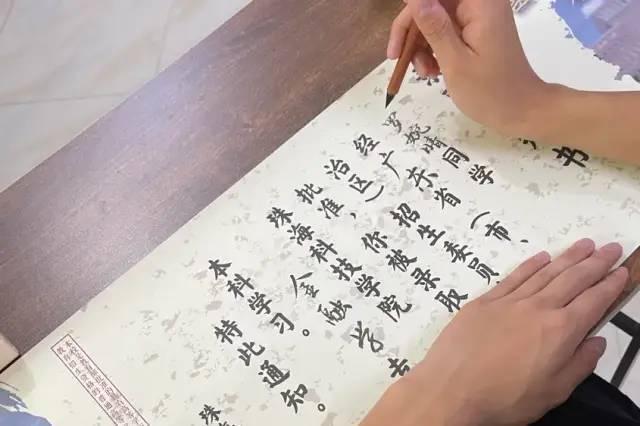 书
罗婉晴同学
经广东省（市、
治区）招生委员
批准，你被录取
珠海科技学院
金融学专
本科学习。
特此通知。
珠